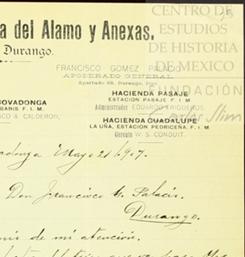 a del Alamo y Anexas.
Durango.
CENTRO DE
ESTUDIOS
DE HISTORIA
DE MEXICO
FUNDACIÓN
Carlos Slim
FRANCISCO GOMEZ PALACIO
APODERADO GENERAL
Apartado 88. Durango, Dgo.
HACIENDA PASAJE
ESTACION PASAJE F. I. M.
Administrador EDUARDO
OVADONGA
F. I. M.
O & CALDERON,
HACIENDA GUADALUPE
LA UÑA, ESTACION PEDRICEÑA, F. I. M.
Gerente W. S. CONDUIT.
donga Mayo 21/907.
Don Francisco G. Palacio.
Durango.
de mi atención.